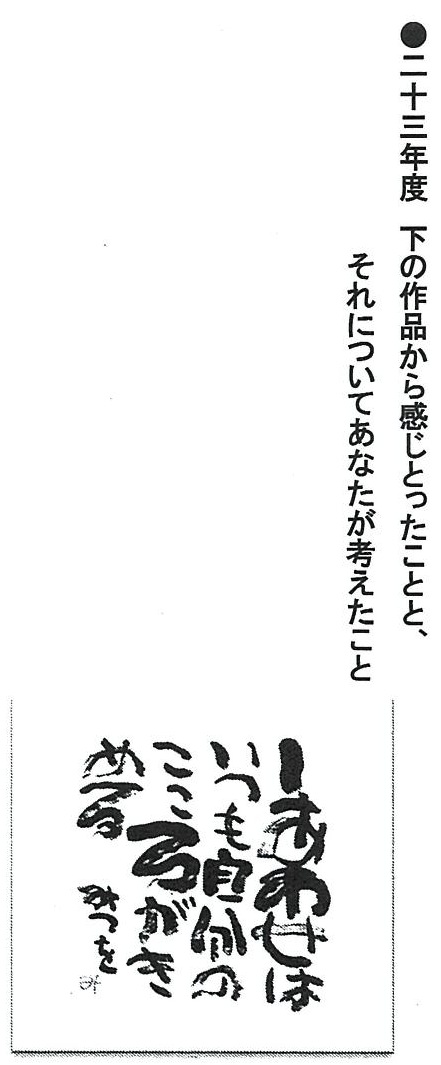 ●二十三年度 下の作品から感じとったことと、
それについてあなたが考えたこと
しあわせは
いつも自分の
こころがき
める
みつを
み